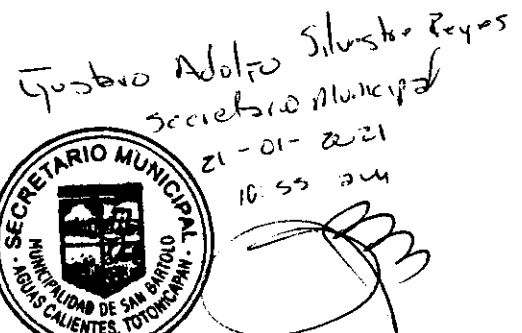 Gustavo Adolfo Silvestre Reyes
Secretario Municipal
21-01-2021
10:55 am
SECRETARIO MUNICIPAL
MUNICIPALIDAD DE SAN BARTOLO
AGUAS CALIENTES, TOTONICAPAN.